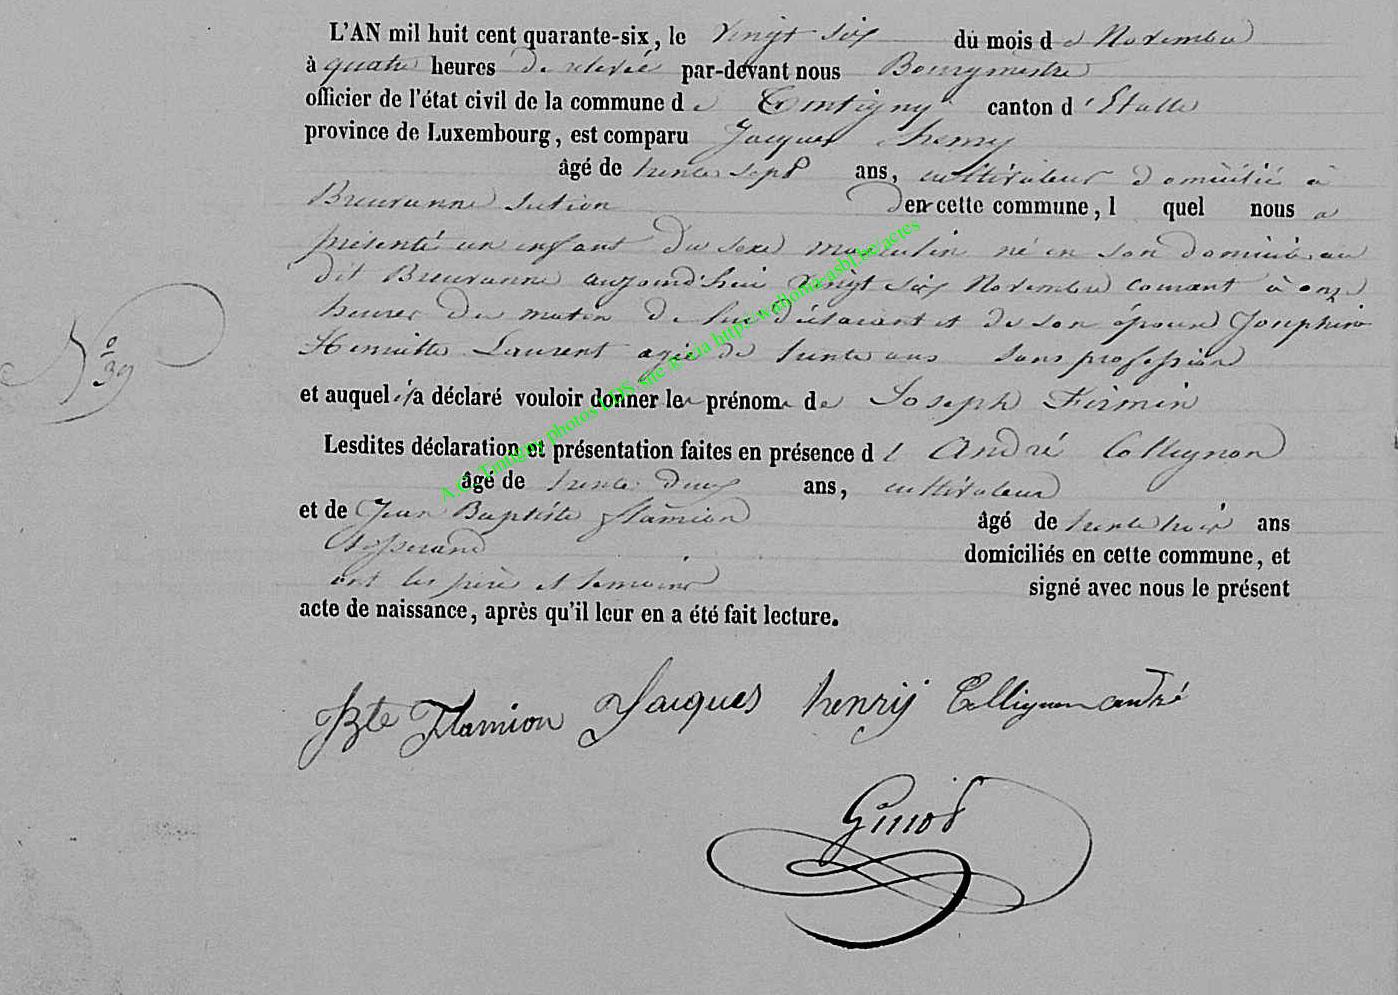 L'AN mil huit cent quarante-six, le vingt six du mois de Novembre
à quatre heures de relevée par-devant nous Bourgmestre
officier de l'état civil de la commune de Tintigny canton d'Etalle
province de Luxembourg, est comparu Jacques henry
âgé de trente sept ans, cultivateur domicilié à
Breuvanne section de cette commune, lequel nous a
présenté un enfant du sexe masculin né en son domicile au
dit Breuvanne aujourd'hui vingt six Novembre courant à onze
heures du matin de lui déclarant et de son épouse Joséphine
Henriette Laurent agée de trente ans sans profession
N° 39
et auquel il a déclaré vouloir donner les prénoms de Joseph Firmin
Lesdites déclaration et présentation faites en présence d André Collignon
âgé de trente deux ans, cultivateur
et de Jean Baptiste flamion âgé de trente trois ans
tisserand domiciliés en cette commune, et
ont les père et témoins signé avec nous le présent
acte de naissance, après qu'il leur en a été fait lecture.
JBte Flamion Jacques henrij Collignon andré
A.C. Tintigny photos LDS, site via http://wallonia-asbl.be/actes